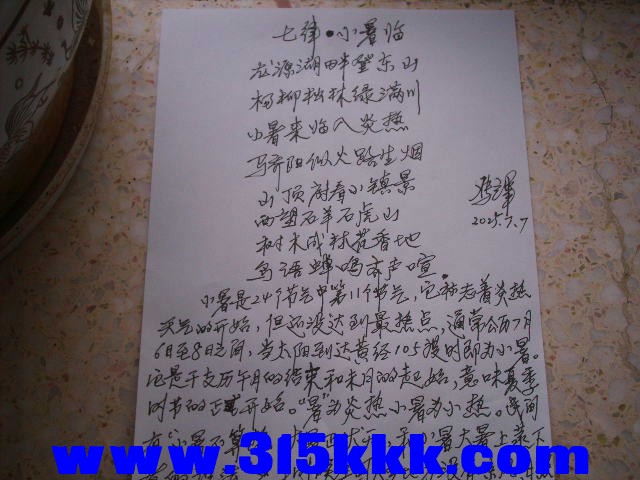 七律•小暑临
龙源湖畔登东山
杨柳松林绿满川
小暑来临入炎热
骄阳似火路生烟
山顶附看小镇景
西望石羊石虎山
树木成林花香地
鸟语蝉鸣齐声喧
2025.7.7
小暑是24个节气中第11个节气,它标志着炎热
天气的开始,但还没达到最热点,通常公历7月
6日至8日之间,当太阳到达黄经105度时即为小暑。
它是干支历午月的结束和未月的起始,意味夏季
时节的正式开始。“暑”为炎热小暑为小热。民间
有“小暑不算热 大暑上蒸下
www.315kkk.com